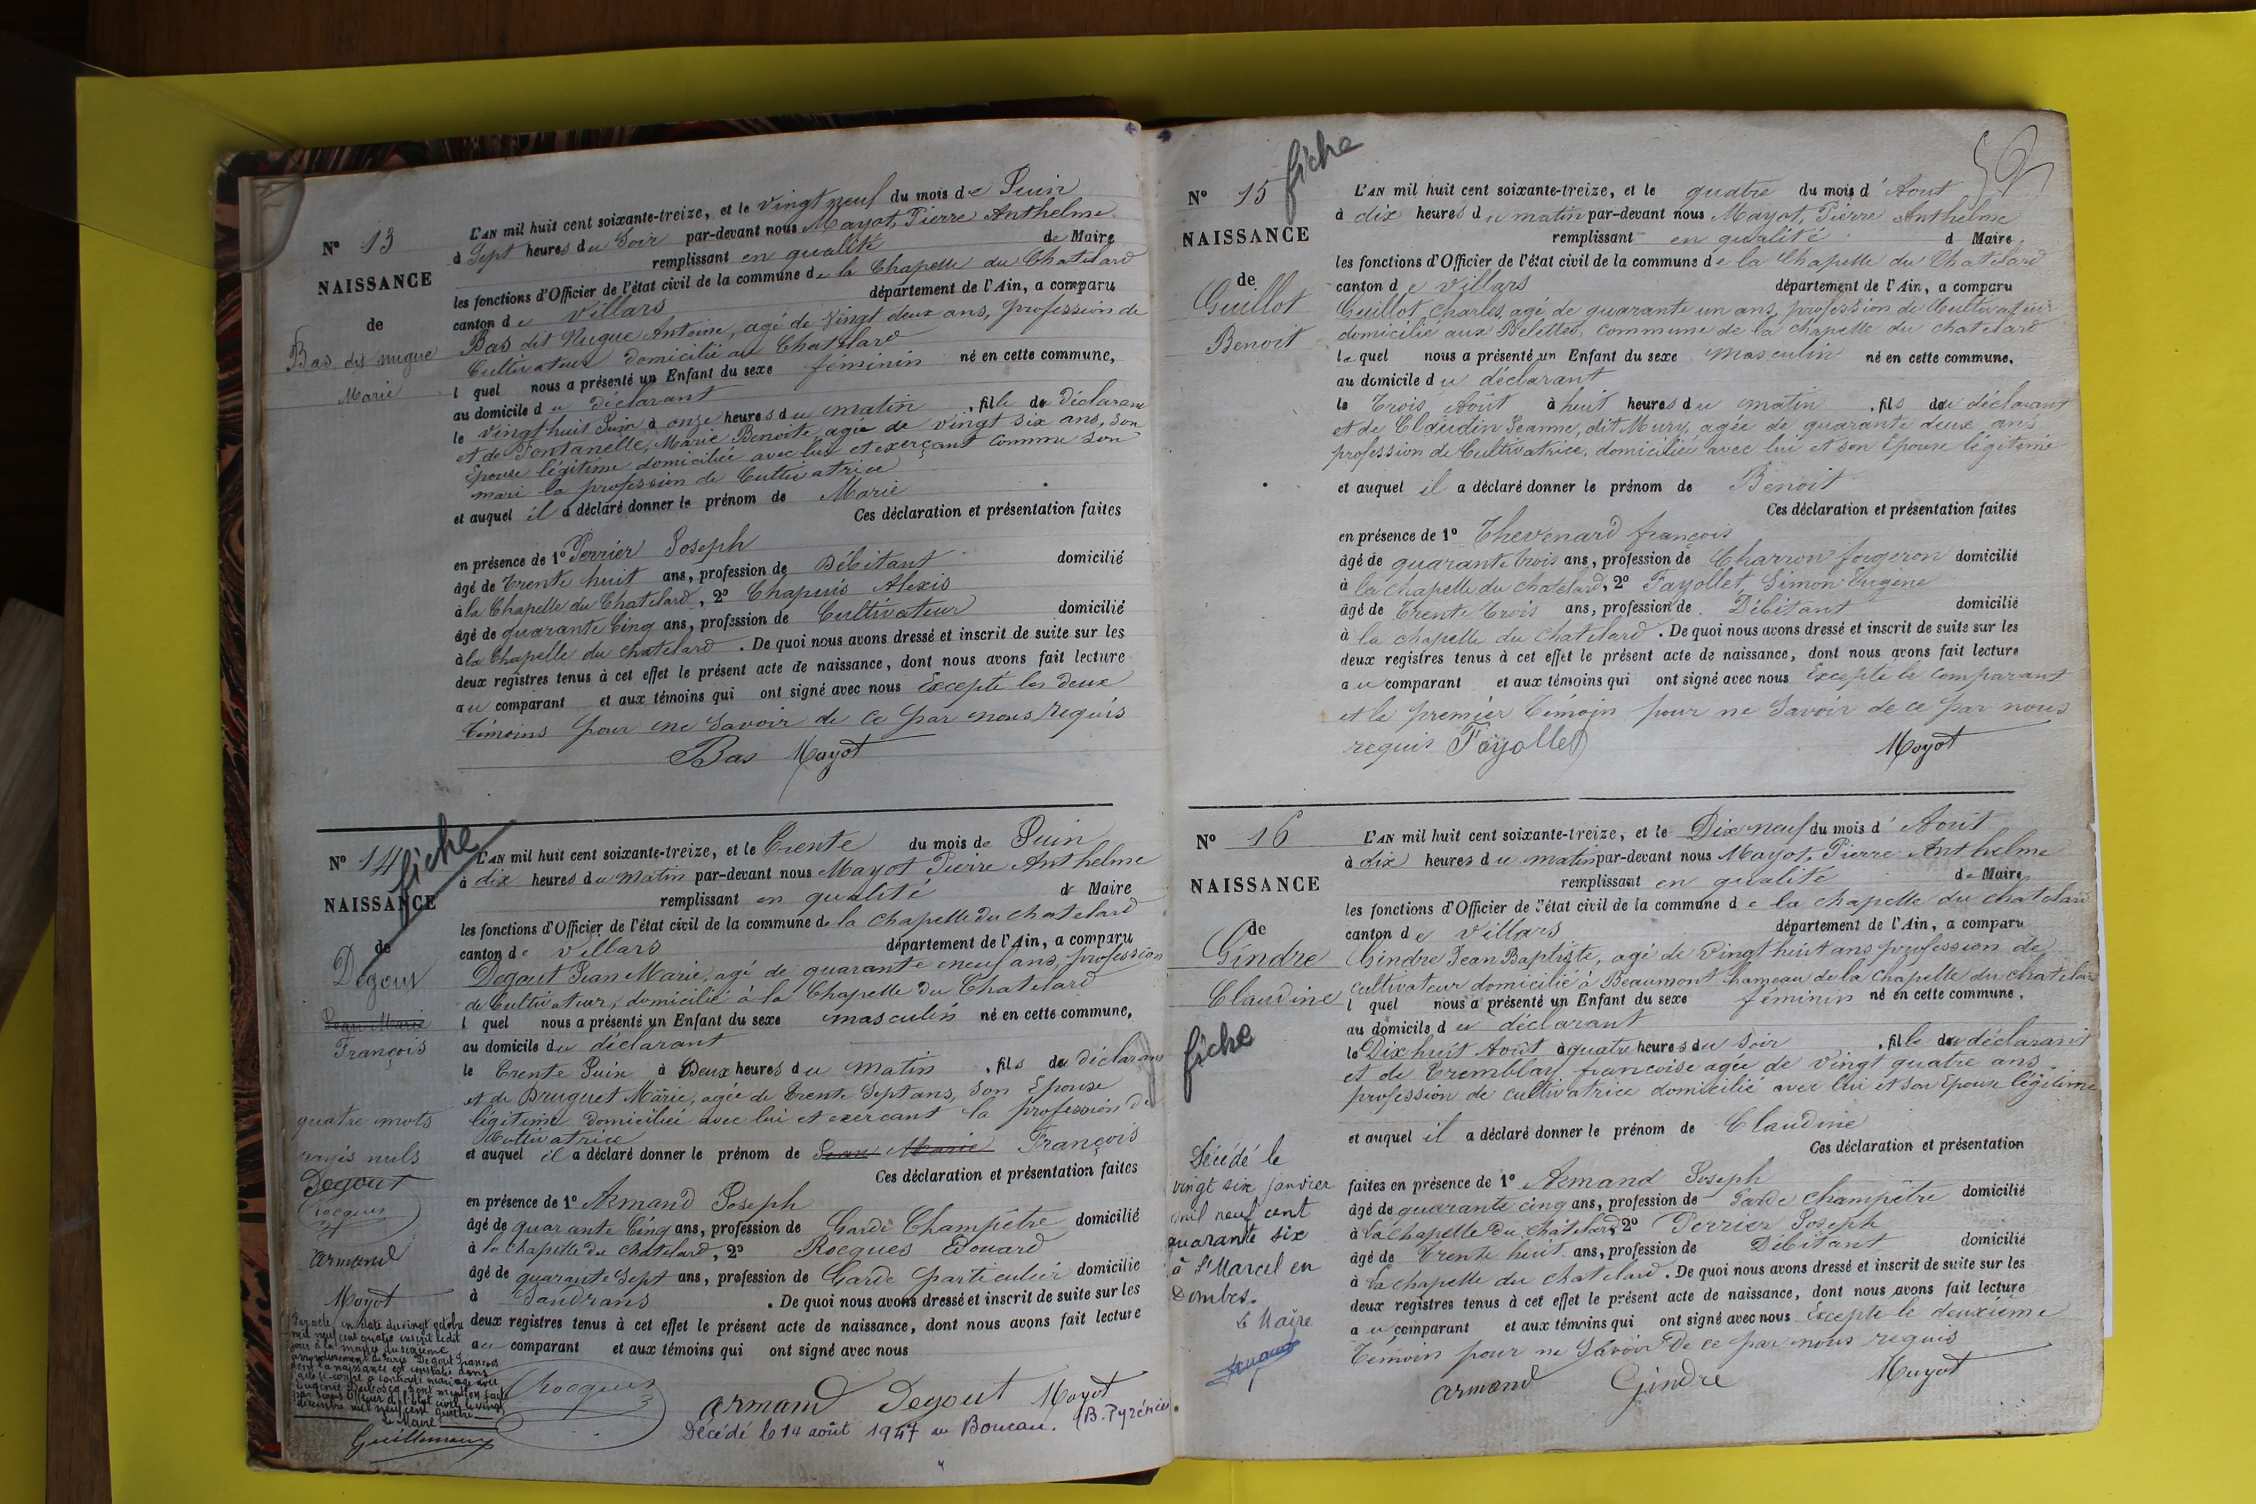 N° 13
NAISSANCE
de
Bas dit nugue
Marie
L'AN mil huit cent soixante-treize, et le vingt neuf du mois de Juin
à Sept heures du Soir par-devant nous Mayot, Pierre Anthelme
remplissant en qualité de Maire
les fonctions d'Officier de l'état civil de la commune de la Chapelle du Chatelard
canton de Villars département de l'Ain, a comparu
Bas dit Nugue Antoine, agé de vingt deux ans, profession de
Cultivateur domicilié au Chatelard
l quel nous a présenté un Enfant du sexe féminin né en cette commune,
au domicile du déclarant
le vingt huit Juin à onze heures du matin , fille de déclarant
et de Fontanelle, Marie Benoite agée de vingt six ans, son
Epouse légitime domiciliée avec lui et exerçant comme son
mari la profession de Cultivatrice
et auquel il a déclaré donner le prénom de Marie
Ces déclaration et présentation faites
en présence de 1° Perrier Joseph
âgé de trente huit ans, profession de Débitant domicilié
à la Chapelle du Chatelard, 2° Chapuis Alexis
âgé de quarante Cinq ans, profession de Cultivateur domicilié
à la Chapelle du chatelard. De quoi nous avons dressé et inscrit de suite sur les
deux registres tenus à cet effet le présent acte de naissance, dont nous avons fait lecture
au comparant et aux témoins qui ont signé avec nous Excepté les deux
témoins pour ne Savoir de ce par nous requis
Bas Mayot
N° 14
fiche
NAISSANCE
de
Degout
Jean Marie
François
quatre mots
rayés nuls
Degout
Rocques
armand
Mayot
Par acte en date du vingt octobre
mil neuf cent quatre inscrit ledit
jour à la mairie du seizième
arrondissement de Paris Degout François
dont la naissance est constatée dans
l'acte ci-contre a contracté mariage avec
Eugénie dont mention faite
par nous officier de l'état civil le vingt
décembre mil neuf cent quatre
Le Maire
Guillemaux
L'AN mil huit cent soixante-treize, et le Trente du mois de Juin
à dix heures du matin par-devant nous Mayot Pierre Anthelme
remplissant en qualité de Maire
les fonctions d'Officier de l'état civil de la commune de la Chapelle du chatelard
canton de Villars département de l'Ain, a comparu
Degout Jean Marie, agé de quarante neuf ans, profession
de Cultivateur, domicilié à la Chapelle du Chatelard
l quel nous a présenté un Enfant du sexe masculin né en cette commune,
au domicile du déclarant
le trente Juin à Deux heures du matin , fils du déclarant
et de Bruguet Marie, agée de trente Sept ans, Son Epouse
légitime domiciliée avec lui et exercant la profession de
Cultivatrice
et auquel il a déclaré donner le prénom de Jean Marie François
Ces déclaration et présentation faites
en présence de 1° Armand Joseph
âgé de quarante Cinq ans, profession de Garde Champêtre domicilié
à la Chapelle du chatelard, 2° Rocques Edouard
âgé de quarante Sept ans, profession de Garde particulier domicilié
à Sandrans . De quoi nous avons dressé et inscrit de suite sur les
deux registres tenus à cet effet le présent acte de naissance, dont nous avons fait lecture
au comparant et aux témoins qui ont signé avec nous
Rocques armand Degout Mayot
Décédé le 14 août 1947 au Boucau. (B. Pyrénées)
N° 15
fiche
NAISSANCE
de
Guillot
Benoit
L'AN mil huit cent soixante-treize, et le quatre du mois d'Aout
à dix heures du matin par-devant nous Mayot, Pierre Anthelme
remplissant en qualité d Maire
les fonctions d'Officier de l'état civil de la commune de la Chapelle du Chatelard
canton de Villars département de l'Ain, a comparu
Guillot Charles, agé de quarante un ans, profession de Cultivateur
domicilié aux Belettes, commune de la chapelle du chatelard
le quel nous a présenté un Enfant du sexe masculin né en cette commune,
au domicile du déclarant
le trois Août à huit heures du matin , fils du déclarant
et de Claudin Jeanne, dit Mury, agée de quarante deux ans
profession de Cultivatrice, domiciliée avec lui et son Epouse légitime
et auquel il a déclaré donner le prénom de Benoit
Ces déclaration et présentation faites
en présence de 1° Thevenard françois
âgé de quarante trois ans, profession de Charron forgeron domicilié
à la chapelle du chatelard, 2° Fayollet Simon Eugène
âgé de trente trois ans, profession de Débitant domicilié
à la chapelle du chatelard. De quoi nous avons dressé et inscrit de suite sur les
deux registres tenus à cet effet le présent acte de naissance, dont nous avons fait lecture
au comparant et aux témoins qui ont signé avec nous Excepté le comparant
et le premier témoin pour ne Savoir de ce par nous
requis Fayollet Mayot
N° 16
NAISSANCE
de
Gindre
Claudine
fiche
Décédé le
vingt six janvier
mil neuf cent
quarante six
à St Marcel en
Dombes.
Le Maire
L'AN mil huit cent soixante-treize, et le Dix neuf du mois d'Août
à dix heures du matin par-devant nous Mayot, Pierre Anthelme
remplissant en qualité de Maire
les fonctions d'Officier de l'état civil de la commune de la chapelle du chatelard
canton de Villars département de l'Ain, a comparu
Gindre Jean Baptiste, agé de vingt huit ans profession de
cultivateur domicilié à Beaumont hameau de la chapelle du chatelard
l quel nous a présenté un Enfant du sexe féminin né en cette commune,
au domicile du déclarant
le Dix huit Août à quatre heures du Soir , fille du déclarant
et de Tremblay francoise agée de vingt quatre ans
profession de cultivatrice domicilié avec lui et son Epouse légitime
et auquel il a déclaré donner le prénom de Claudine
Ces déclaration et présentation
faites en présence de 1° Armand Joseph
âgé de quarante cinq ans, profession de Garde champêtre domicilié
à la chapelle du chatelard, 2° Perrier Joseph
âgé de trente huit ans, profession de Débitant domicilié
à la chapelle du chatelard. De quoi nous avons dressé et inscrit de suite sur les
deux registres tenus à cet effet le présent acte de naissance, dont nous avons fait lecture
au comparant et aux témoins qui ont signé avec nous Excepté le deuxième
Témoin pour ne Savoir De ce par nous requis
armand Gindre Mayot